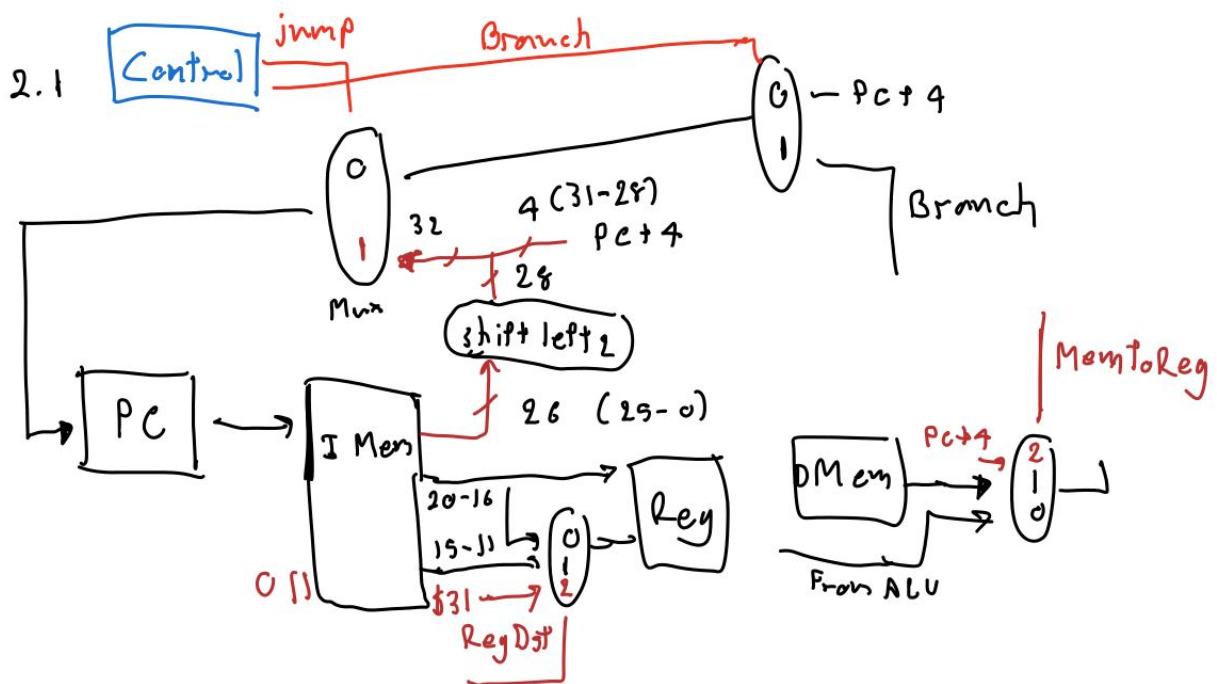 2.1
Control
jump
Branch
0
1
PC+4
Branch
0
1
Mux
32
4 (31-28)
PC+4
28
shift left 2
26 (25-0)
PC
I Mem
20-16
15-11
$31
0
1
2
RegDst
Reg
DMem
PC+4
2
1
0
MemtoReg
From ALU